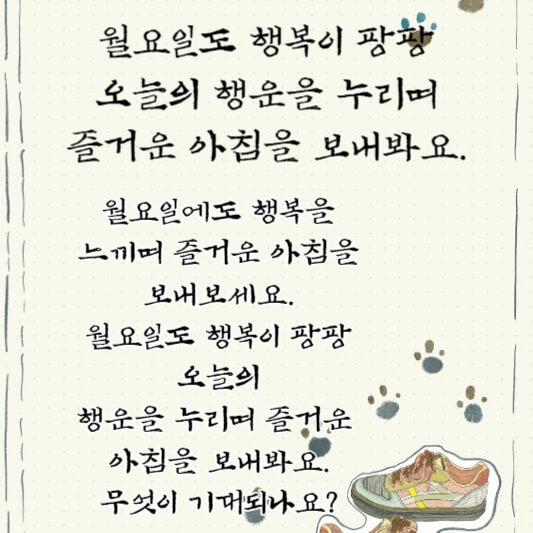 월요일도 행복이 팡팡
오늘의 행운을 누리며
즐거운 아침을 보내봐요.
월요일에도 행복을
느끼며 즐거운 아침을
보내보세요.
월요일도 행복이 팡팡
오늘의
행운을 누리며 즐거운
아침을 보내봐요.
무엇이 기대되나요?